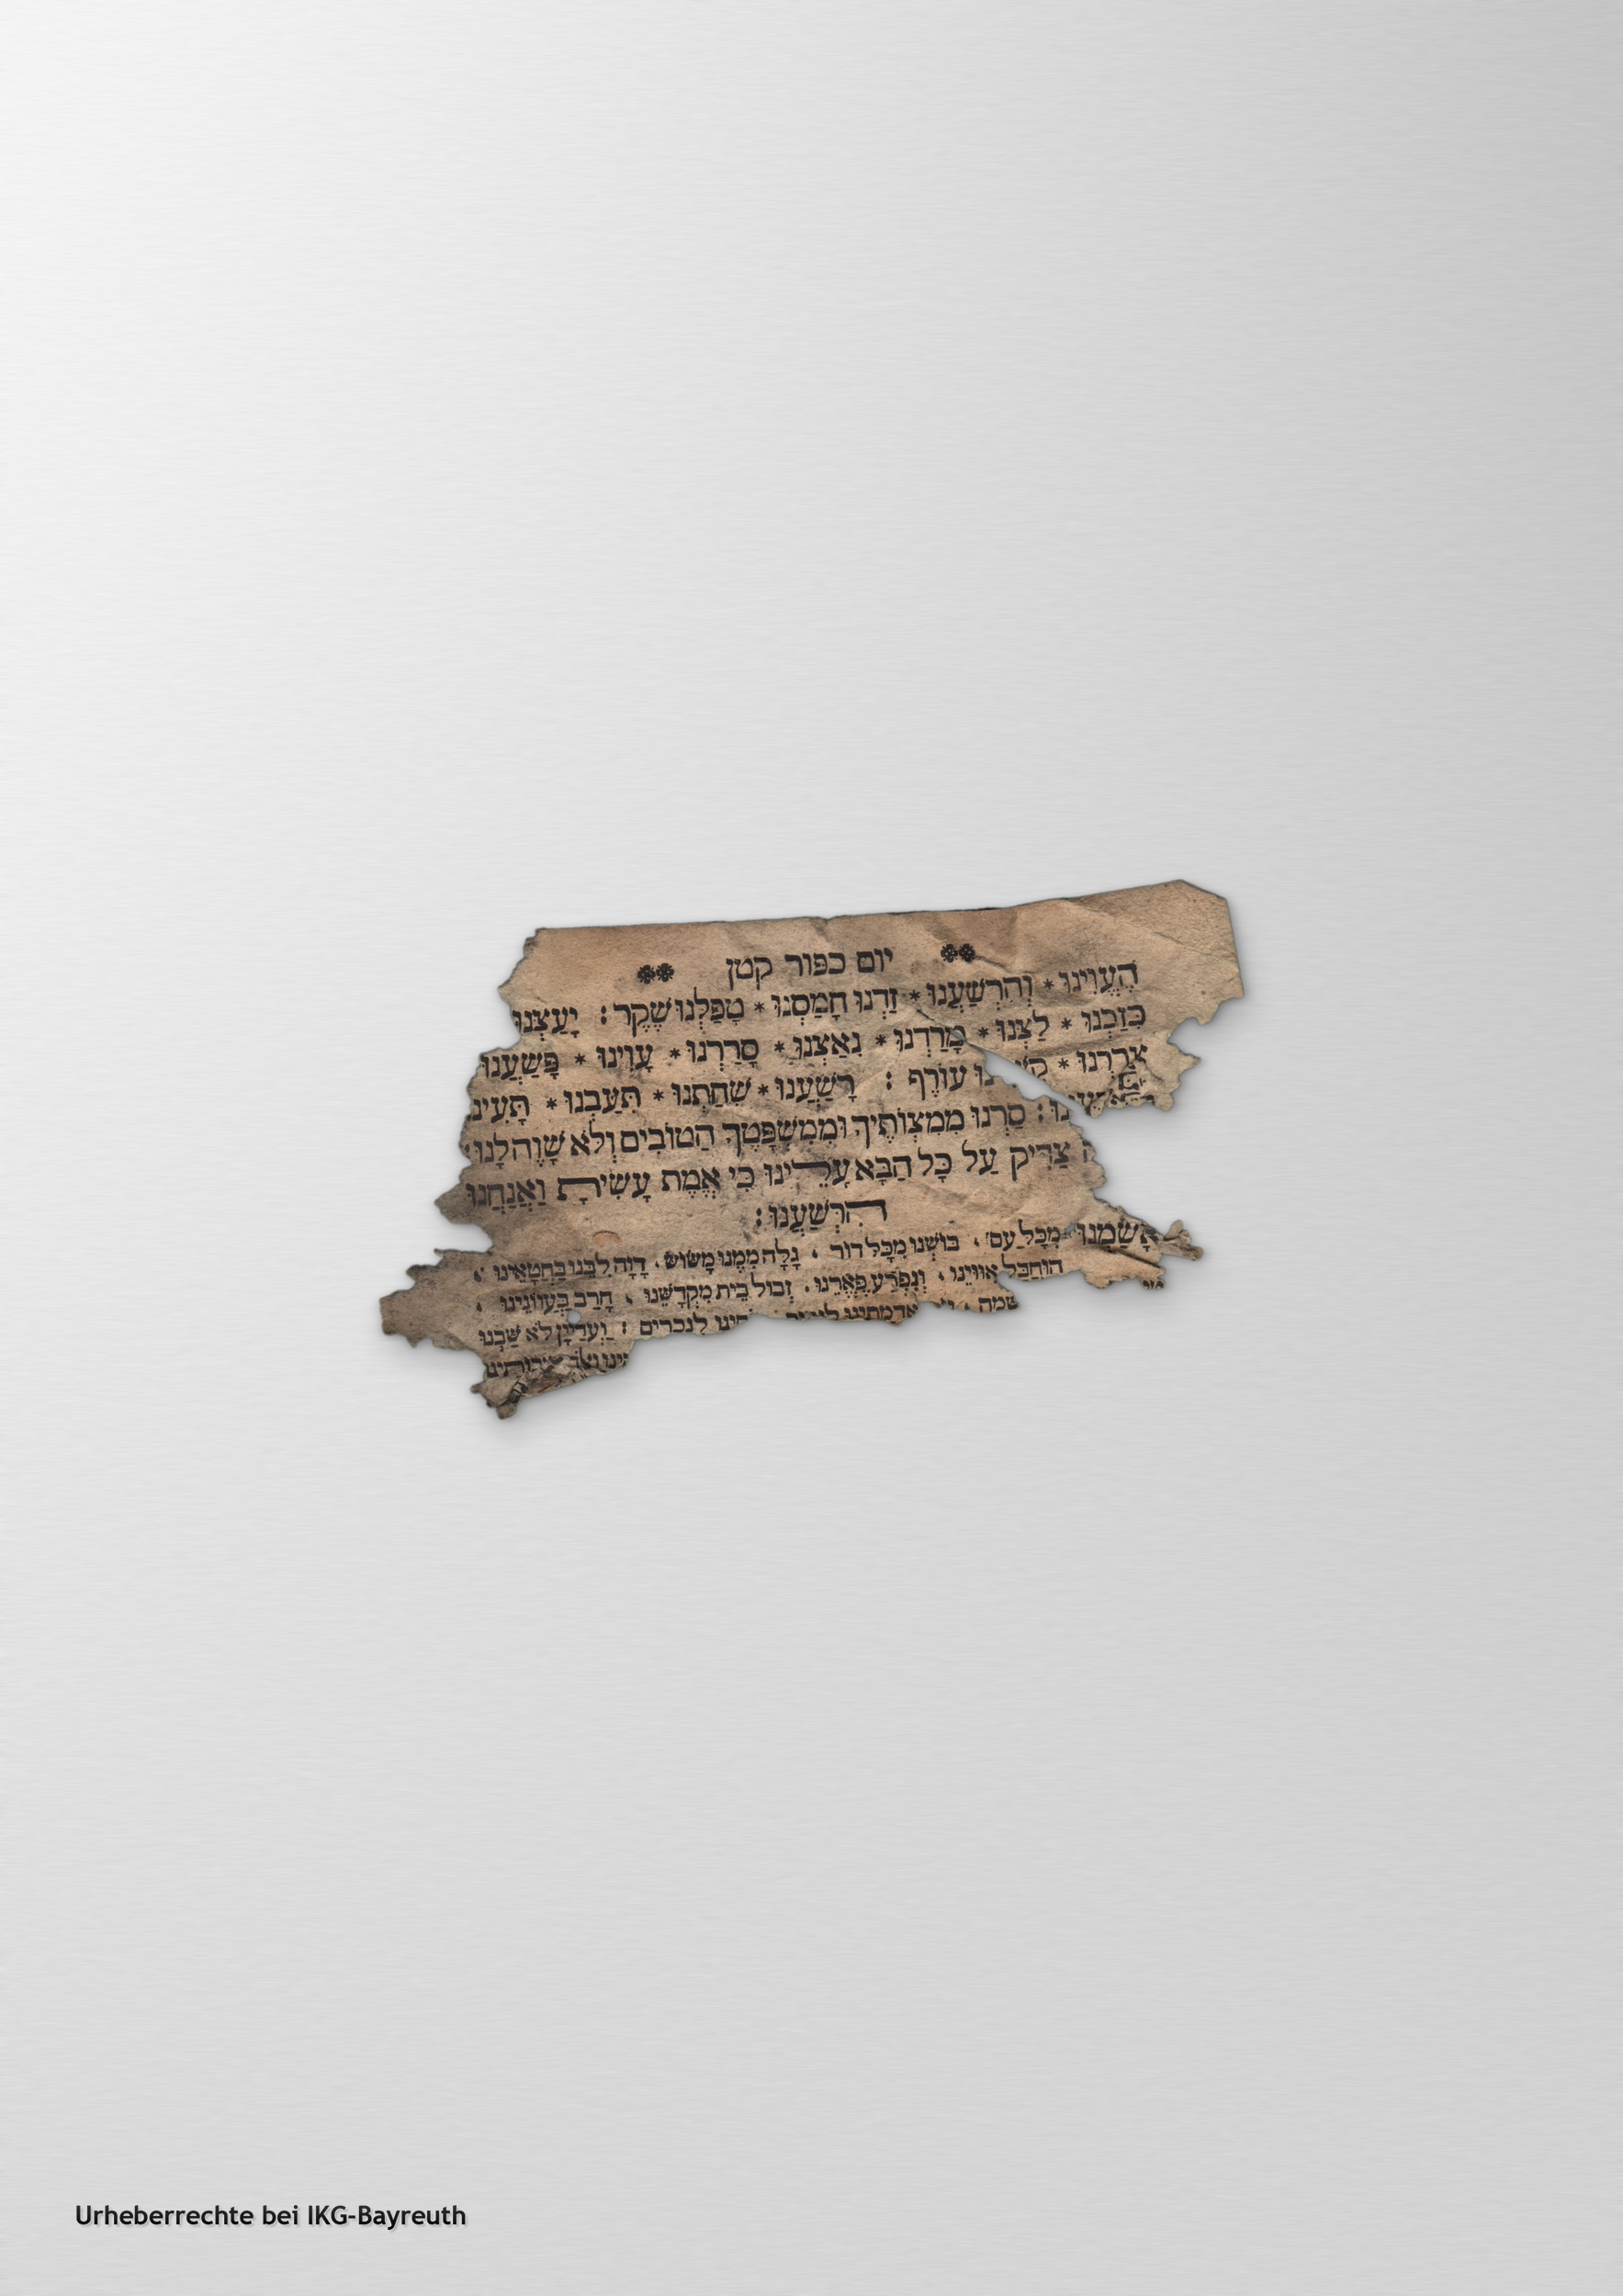 יום כפור קטן
הֶעֱוִינוּ * וְהִרְשַׁעְנוּ * זַדְנוּ חָמַסְנוּ * טָפַלְנוּ שֶׁקֶר : יָעַצְנוּ
כִּזַּבְנוּ * לַצְנוּ * מָרַדְנוּ * נִאַצְנוּ * סָרַרְנוּ * עָוִינוּ * פָּשַׁעְנוּ
צָרַרְנוּ * עוֹרֶף : רָשַׁעְנוּ * שִׁחַתְנוּ * תִּעַבְנוּ * תָּעִינוּ
סַרְנוּ מִמִצְוֹתֶיךָ וּמִמִשְׁפָּטֶיךָ הַטּוֹבִים וְלֹא שָׁוָה לָנוּ
צַדִּיק עַל כָּל הַבָּא עָלֵינוּ כִּי אֱמֶת עָשִׂיתָ וַאֲנַחְנוּ
הִרְשָׁעְנוּ :
אָשַׁמְנוּ מִכָּל עַם ، בּוֹשְׁנוּ מִכָּל דוֹר ، גָלָה מִמֶנוּ מָשׂוֹשׂ ، דָוָה לִבֵּנוּ בַּחֲטָאֵינוּ ،
הוּחְבַּל אִוּוּיֵנוּ ، וְנִפְרַע פְּאֵרֵנוּ ، זְבוּל בֵּית מִקְדָשֵׁנוּ ، חָרַב בַּעֲווֹנֵינוּ ،
לְנָכְרִים : וַעֲדַיִין לֹא שַׁבְנוּ
Urheberrechte bei IKG-Bayreuth